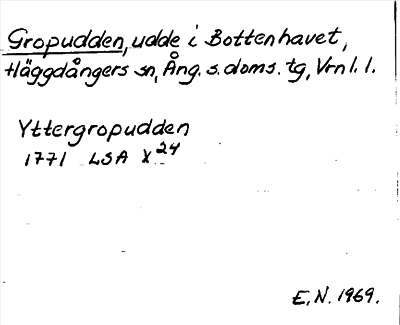 Gropudden, udde i Bottenhavet,
Häggdångers sn, Ång. s. doms. tg, Vrnl. l.
Yttergropudden
1771 LSA X 24
E.N. 1969.